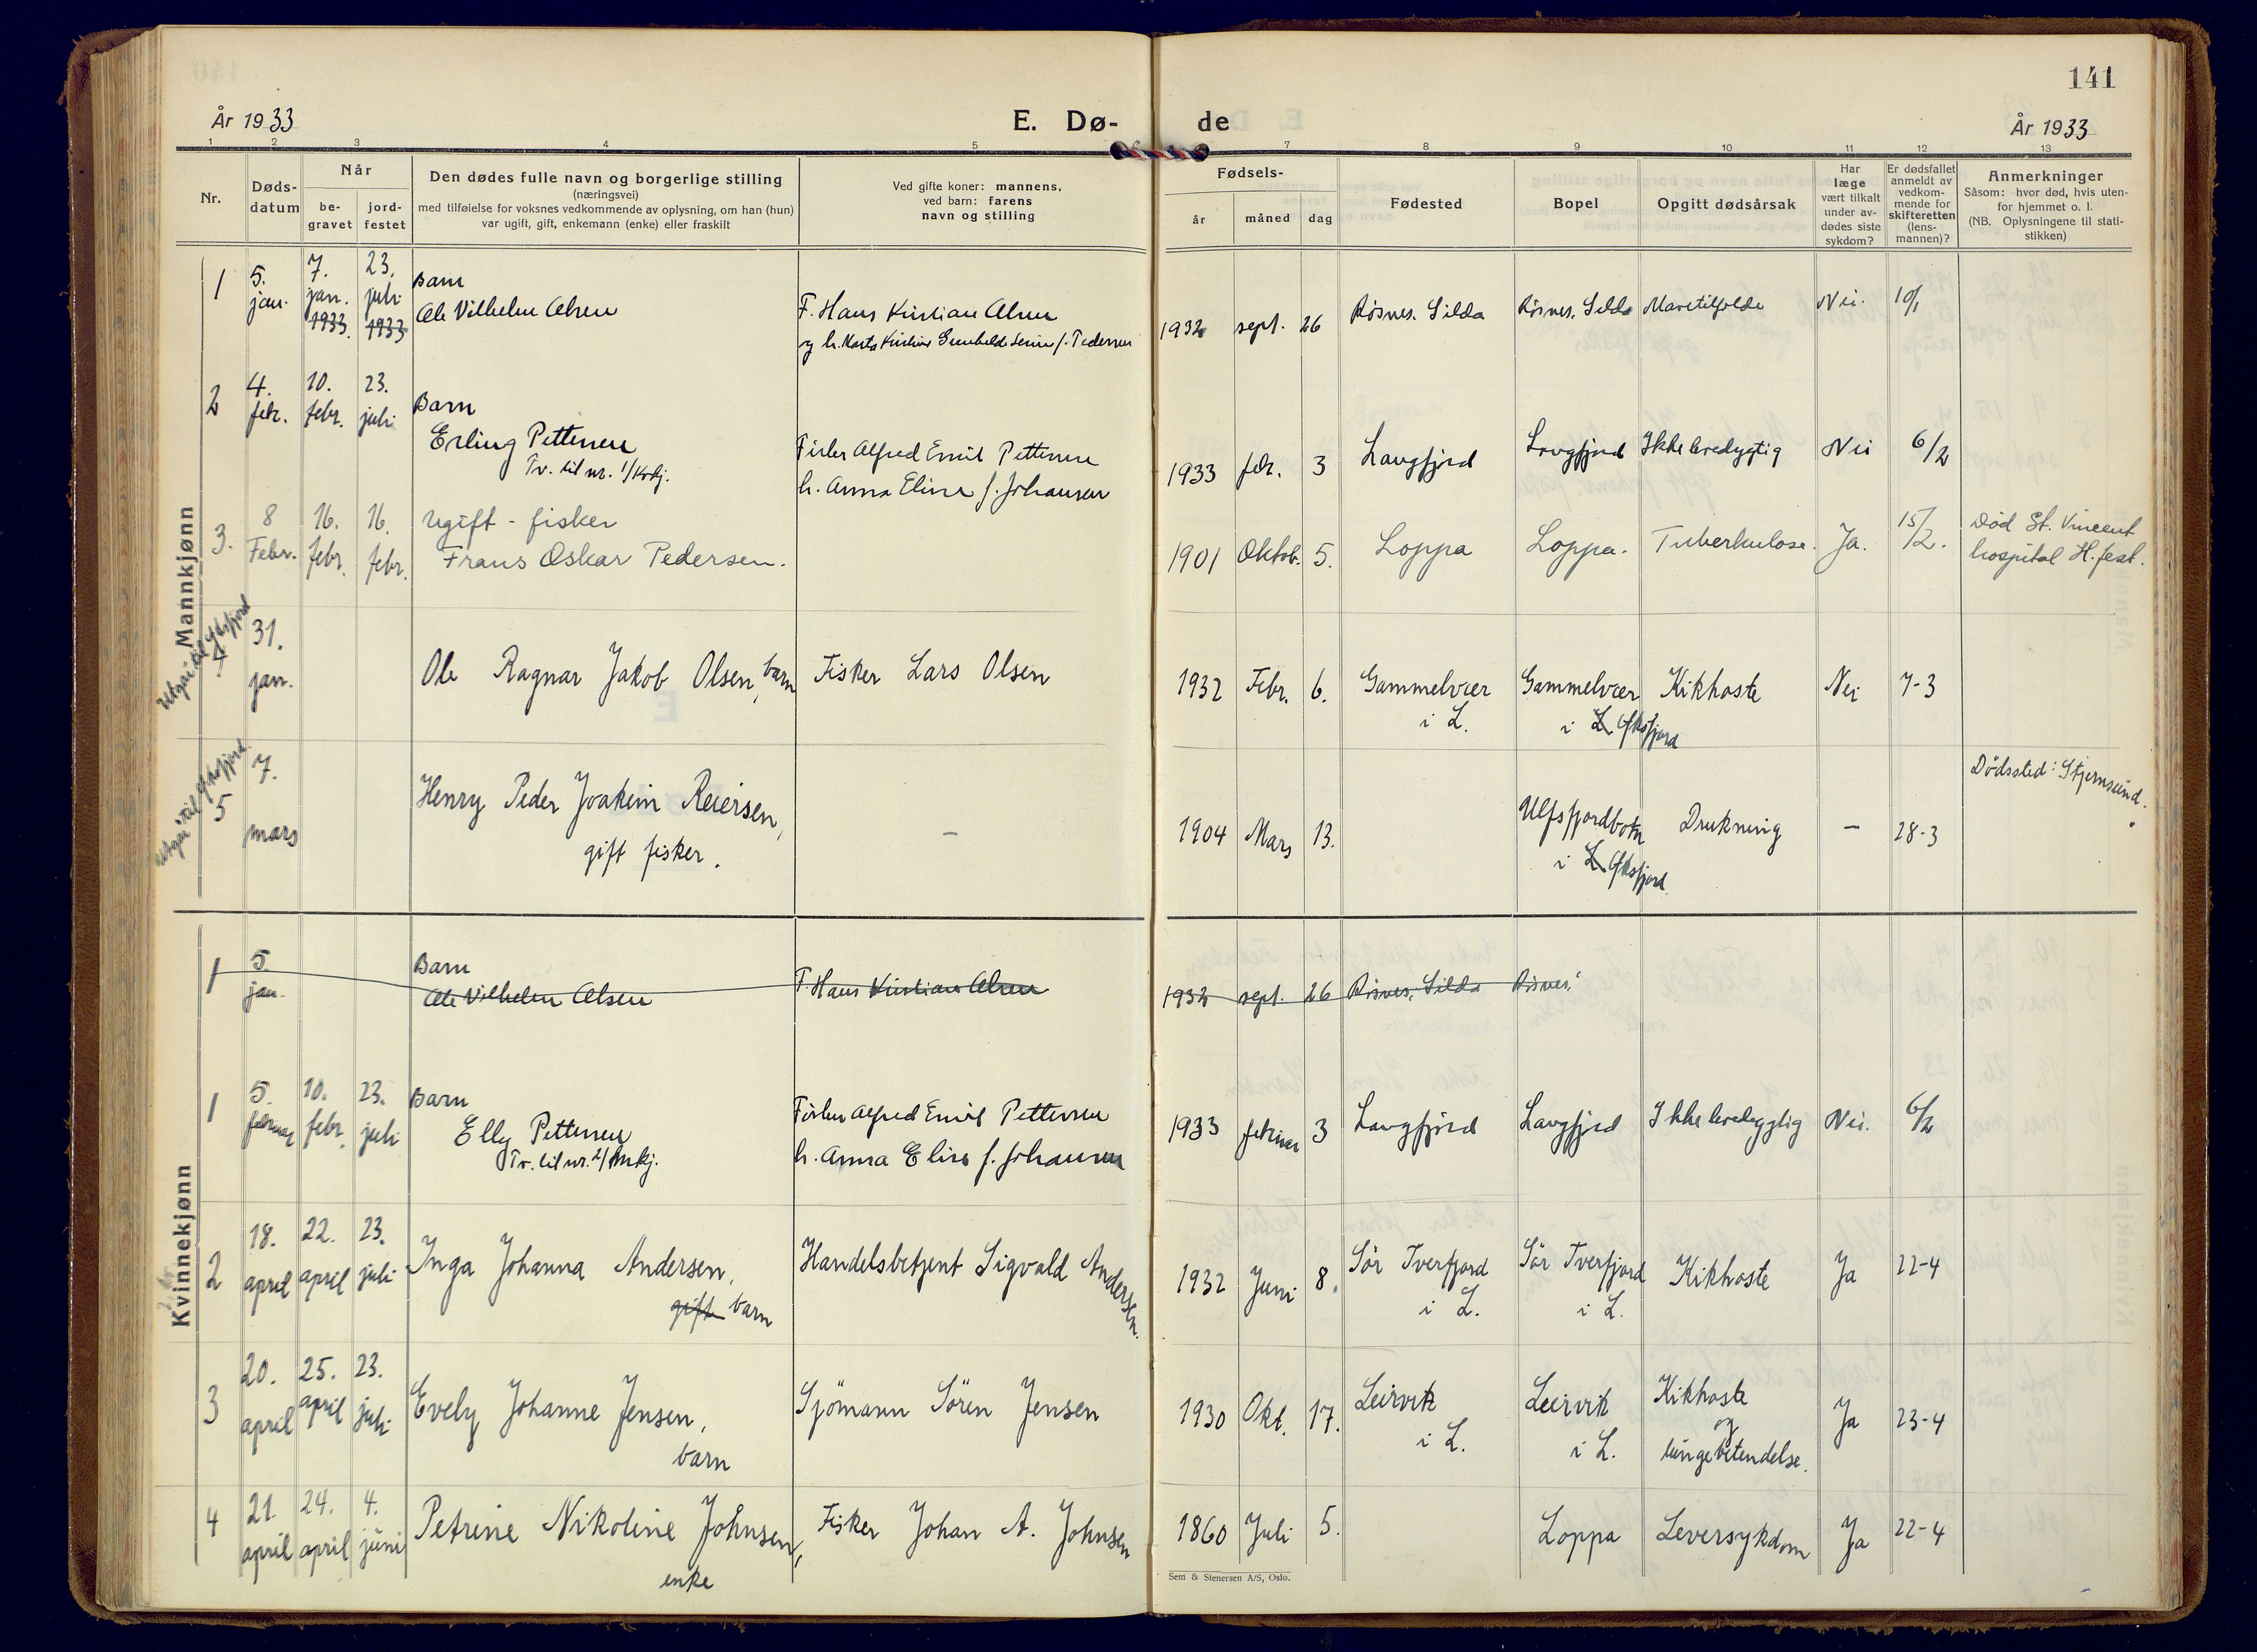 141
År 1933
E. Dø-
de
År 1933
1 2 3 4 5 6 7 8 9 10 11 12 13
Nr.
Døds-
datum
Når
be-
gravet
jord-
festet
Den dødes fulle navn og borgerlige stilling
(næringsvei)
med tilføielse for voksnes vedkommende av oplysning, om han (hun)
var ugift, gift, enkemann (enke) eller fraskilt
Ved gifte koner: mannens,
ved barn: farens
navn og stilling
Fødsels-
år
måned
dag
Fødested
Bopel
Opgitt dødsårsak
Har
læge
vært tilkalt
under av-
dødes siste
sykdom?
Er dødsfallet
anmeldt av
vedkom-
mende for
skifteretten
(lens-
mannen)?
Anmerkninger
Såsom: hvor død, hvis uten-
for hjemmet o. l.
(NB. Oplysningene til stati-
stikken)
Mannkjønn
1
5.
jan.
7.
jan.
1933.
23.
juli
1933
Barn
Ole Vilhelm Olsen
F. Hans Kristian Olsen
og h. Kristine f. Pedersen
1932 sept. 26
Risnes, Silda
Risnes, Silda
Nei.
10/1
2
4.
febr.
10.
febr.
23.
juli
Barn
Erling Pettersen
Tv. til nr. 1/Kvkj.
Fisker Alfred Emil Pettersen
h. Anna Elise f. Johansen
1933 febr. 3
Langfjord
Langfjord
Ikke levedygtig
Nei
6/2
3.
8
Febr.
16.
febr.
16.
febr.
Ugift - fisker
Frans Oskar Pedersen.
1901 Oktob. 5.
Loppa
Loppa.
Tuberkulose.
Ja.
15/2.
Død St. Vincent
hospital H.fest.
Utgår til Øksfjord
4
31.
jan.
Ole Ragnar Jakob Olsen, barn
Fisker Lars Olsen
1932 Febr. 6.
Gammelvær
i L.
Gammelvær
i L. Øksfjord
Kikhoste
Nei
7-3
Utgår til Øksfjord
5
7.
mars
Henry Peder Joakim Reiersen,
gift fisker.
-
1904 Mars 13.
Ulfsfjordbotn
i L. Øksfjord
Drukning
-
28-3
Dødssted: Stjernsund.
Kvinnekjønn
1
5.
jan.
Barn
Ole Vilhelm Olsen
F. Hans Kristian Olsen
1932 sept. 26
Risnes, Silda
Risnes,
1
5.
februar
10.
febr.
23.
juli
Barn
Elly Pettersen
Tv. til nr. 2/Mkj.
Fisker Alfred Emil Pettersen
h. Anna Elise f. Johansen
1933 februar 3
Langfjord
Langfjord
Ikke levedygtig
Nei.
6/2
2
18.
april
22.
april
23.
juli
Inga Johanna Andersen,
gift barn
Handelsbetjent Sigvald Andersen.
1932 Juni 8.
Sör Tverfjord
i L.
Sör Tverfjord
i L.
Kikhoste
Ja
22-4
3
20.
april
25.
april
23.
juli
Evely Johanne Jensen,
barn
Sjömann Sören Jensen
1930 Okt. 17.
Leirvik
i L.
Leirvik
i L.
Kikhoste
og
lungebetendelse.
Ja
23-4
4
21.
april
24.
april
4.
juni
Petrine Nikoline Johnsen,
enke
Fisker Johan A. Johnsen
1860 Juli 5.
Loppa
Leversykdom
Ja
22-4
Sem & Stenersen A/S, Oslo.